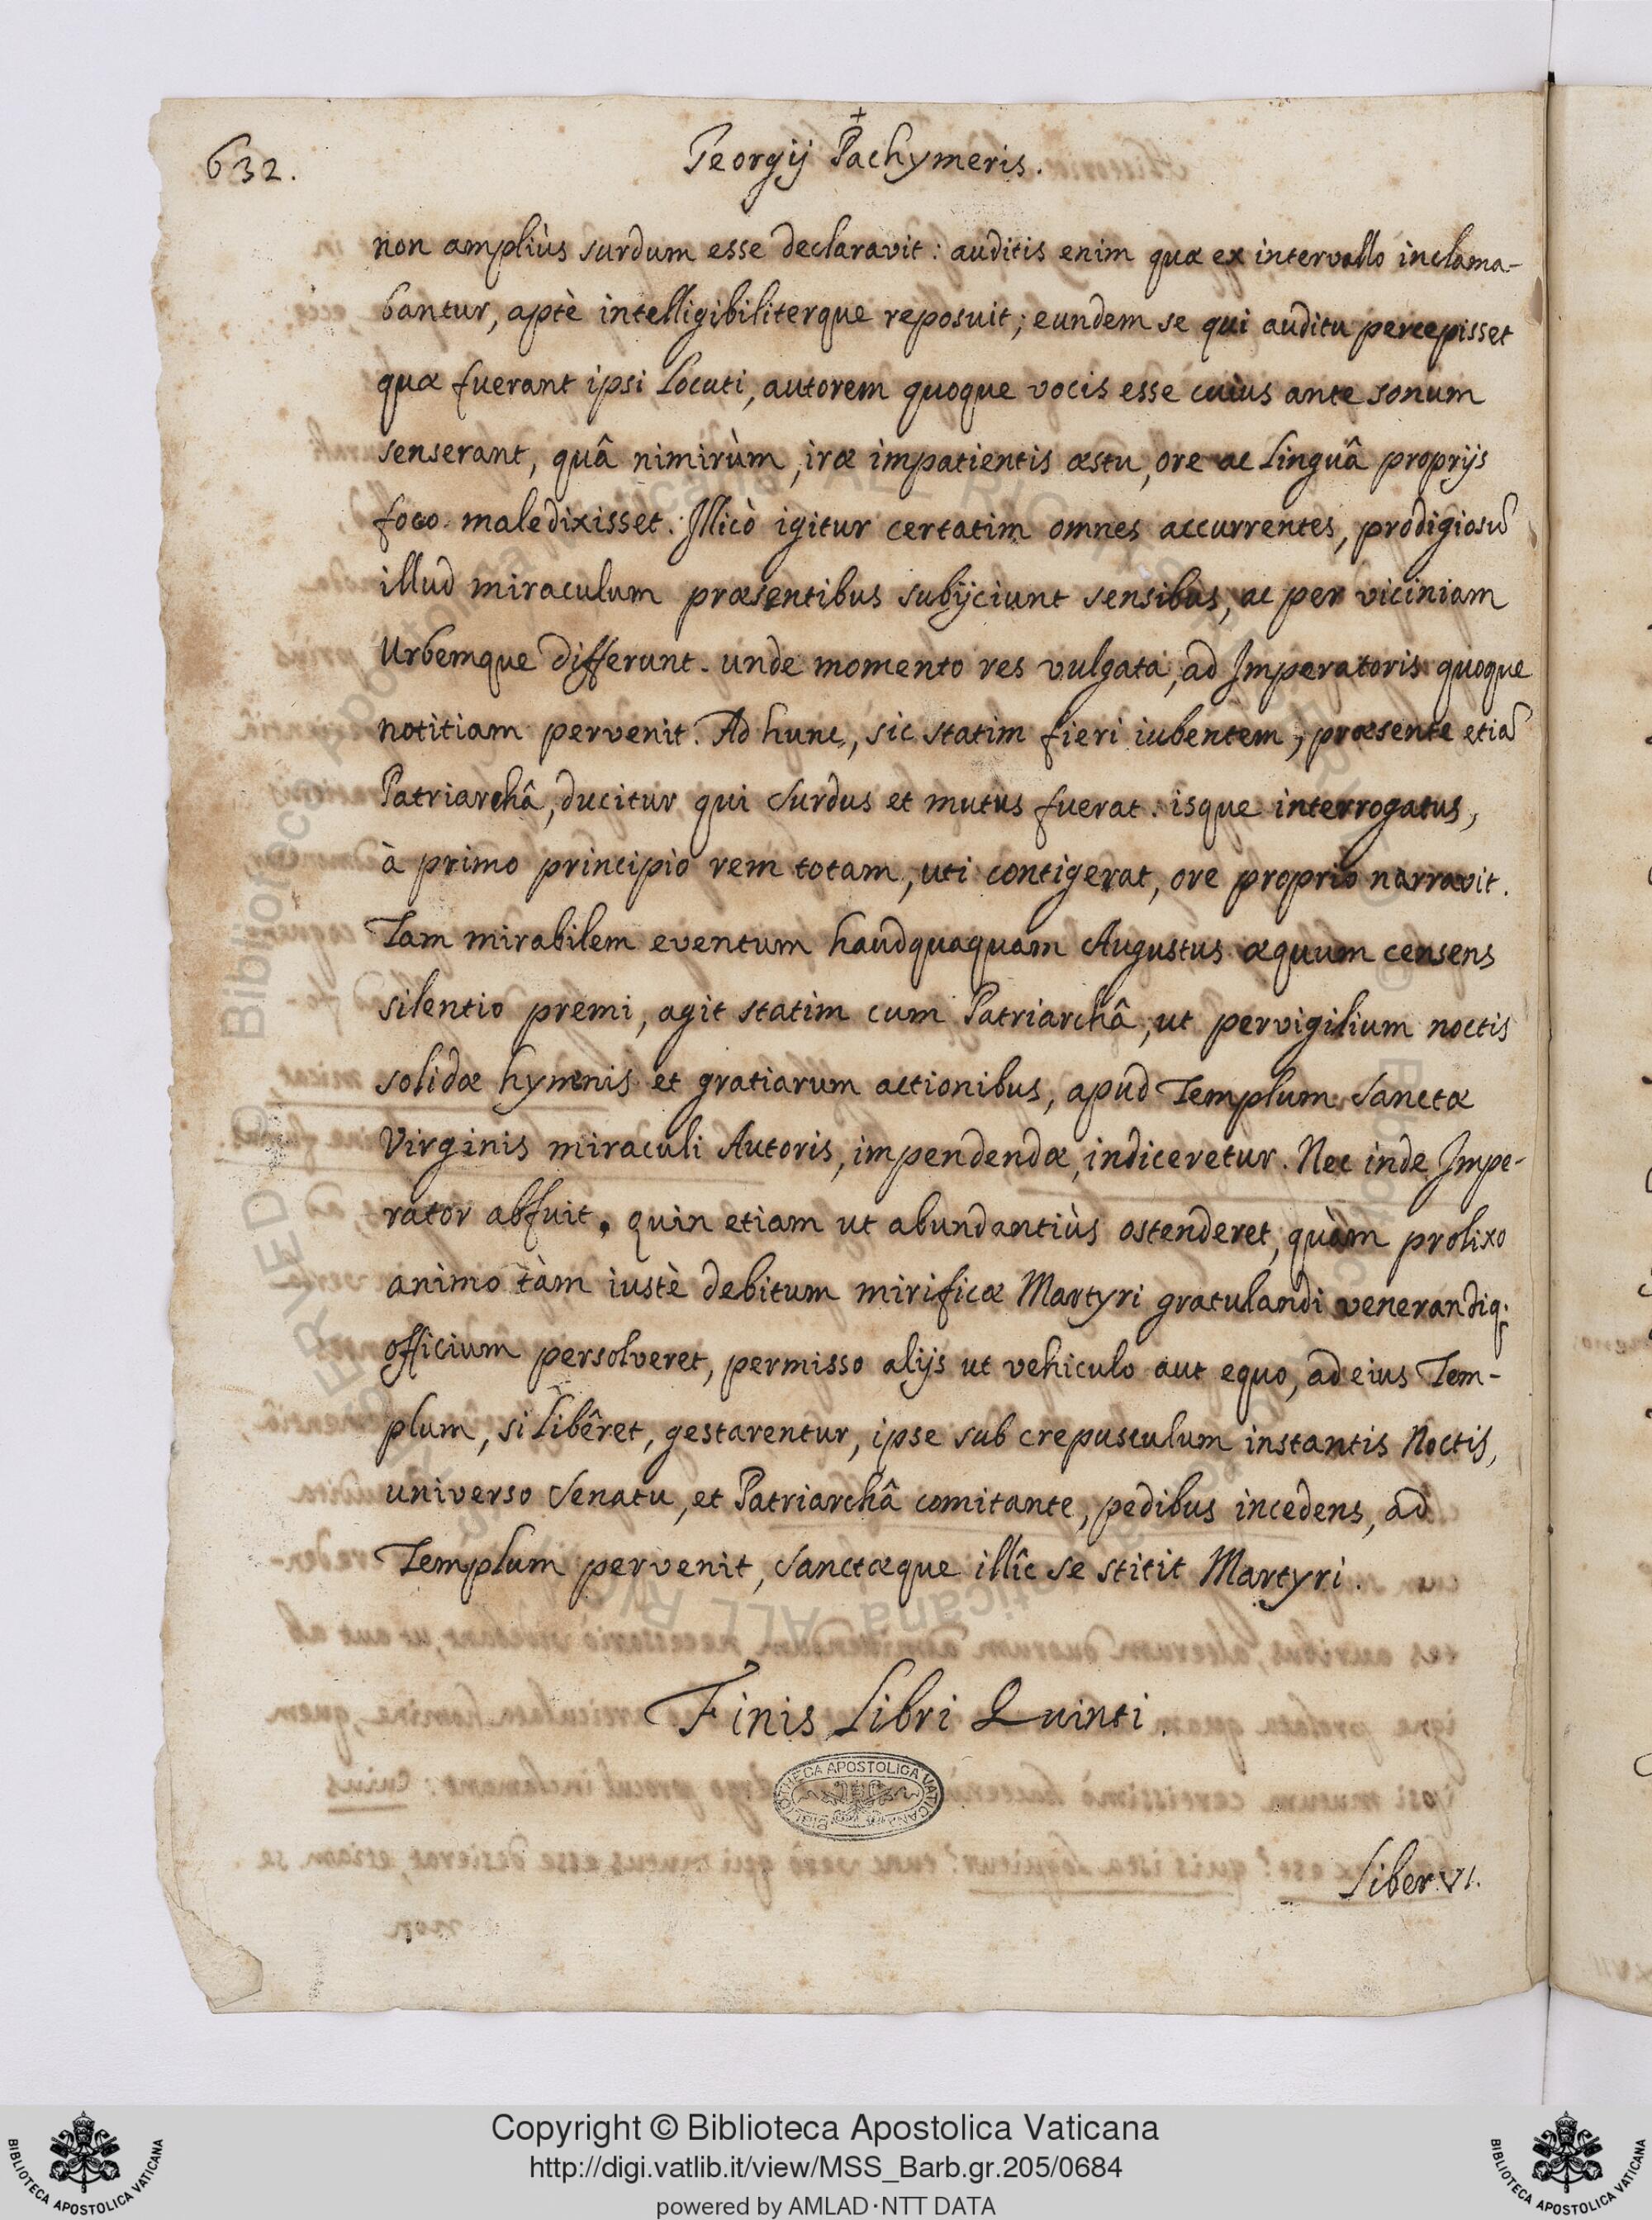 632.
Georgij Pachymeris.
non ampliùs surdum esse declaravit: auditis enim quæ ex intervallo inclama-
bantur, aptè intelligibiliterque reposuit; eundem se qui auditu percepisset
quæ fuerant ipsi locuti, autorem quoque vocis esse cuius ante sonum
senserant, quâ nimirùm, iræ impatientis æstu, ore ac linguâ proprijs
foco maledixisset. Illicò igitur certatim omnes accurrentes, prodigiosũ
illud miraculum præsentibus subijciunt sensibus, ac per viciniam
Urbemque differunt. unde momento res vulgata, ad Imperatoris quoque
notitiam pervenit. Ad hunc, sic statim fieri iubentem, præsente etiã
Patriarchâ, ducitur qui surdus et mutus fuerat. isque interrogatus,
à primo principio rem totam, uti contigerat, ore proprio narravit.
Tam mirabilem eventum haudquaquam Augustus æquum censens
silentio premi, agit statim cum Patriarchâ, ut pervigilium noctis
solidæ hymnis et gratiarum actionibus, apud Templum Sanctæ
Virginis miraculi Autoris, impendendæ, indiceretur. Nec inde Impe-
rator abfuit. quin etiam ut abundantiùs ostenderet, quàm prolixo
animo tàm iustè debitum mirificæ Martyri gratulandi venerandiq;
officium persolveret, permisso alijs ut vehiculo aut equo, ad eius Tem-
plum, si libêret, gestarentur, ipse sub crepusculum instantis Noctis,
universo Senatu, et Patriarchâ comitante, pedibus incedens, ad
Templum pervenit, Sanctæque illîc se stitit Martyri.
Finis Libri Quinti.
BIBLIOTHECA APOSTOLICA VATICANA
Liber VI.
Copyright © Biblioteca Apostolica Vaticana
http://digi.vatlib.it/view/MSS_Barb.gr.205/0684
powered by AMLAD·NTT DATA
BIBLIOTECA APOSTOLICA VATICANA
BIBLIOTECA APOSTOLICA VATICANA